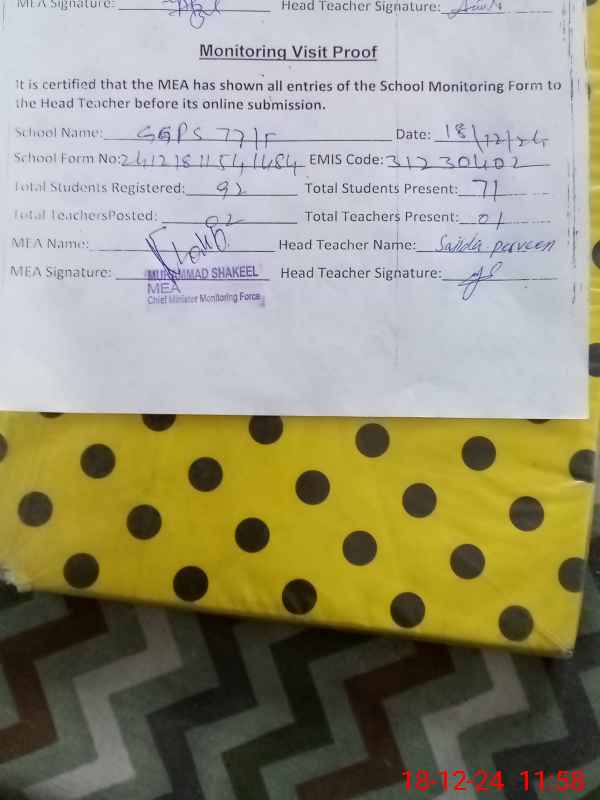 MEA Signature: Head Teacher Signature:
Monitoring Visit Proof
It is certified that the MEA has shown all entries of the School Monitoring Form to
the Head Teacher before its online submission.
School Name: GGPS 77/F Date: 18/12/24
School Form No: EMIS Code: 31230402
Total Students Registered: 92 Total Students Present: 71
Total TeachersPosted: 02 Total Teachers Present: 01
MEA Name: Head Teacher Name: Sajida perveen
MEA Signature: MUHAMMAD SHAKEEL Head Teacher Signature:
MEA
Chief Minister Monitoring Force
18-12-24 11:58